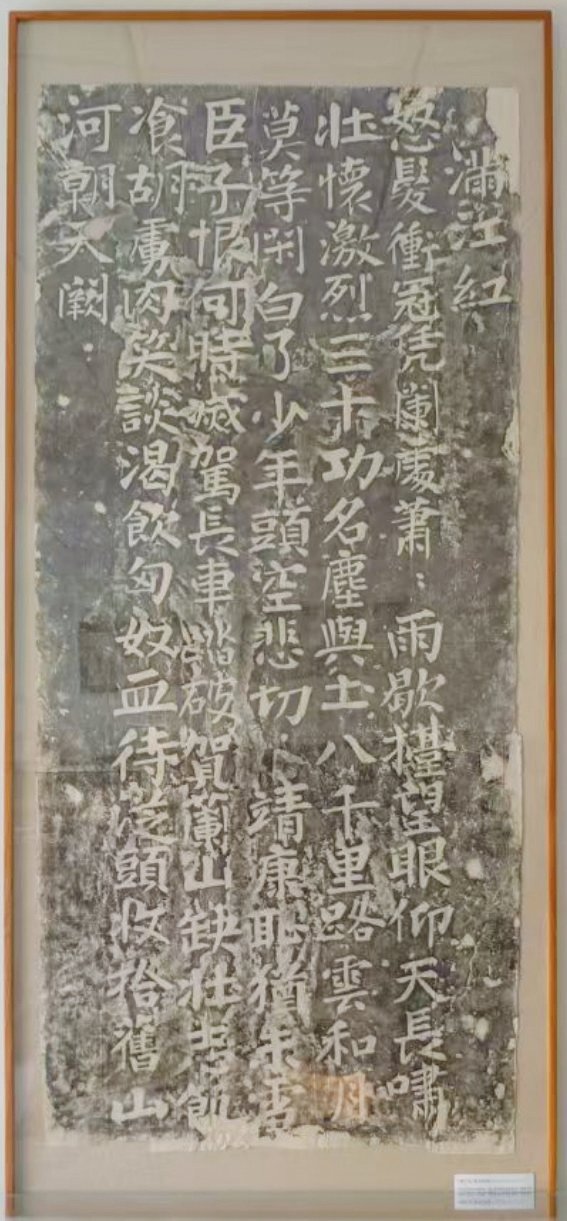 滿江紅
怒髮衝冠凭闌處蕭〻雨歇擡望眼仰天長嘯
壯懷激烈三十功名塵與土八千里路雲和月
莫等閑白了少年頭空悲切靖康恥猶未雪
臣子恨何時滅駕長車踏破賀蘭山缺壯志飢
飡胡虜肉笑談渴飲匈奴血待從頭收拾舊山
河朝天闕